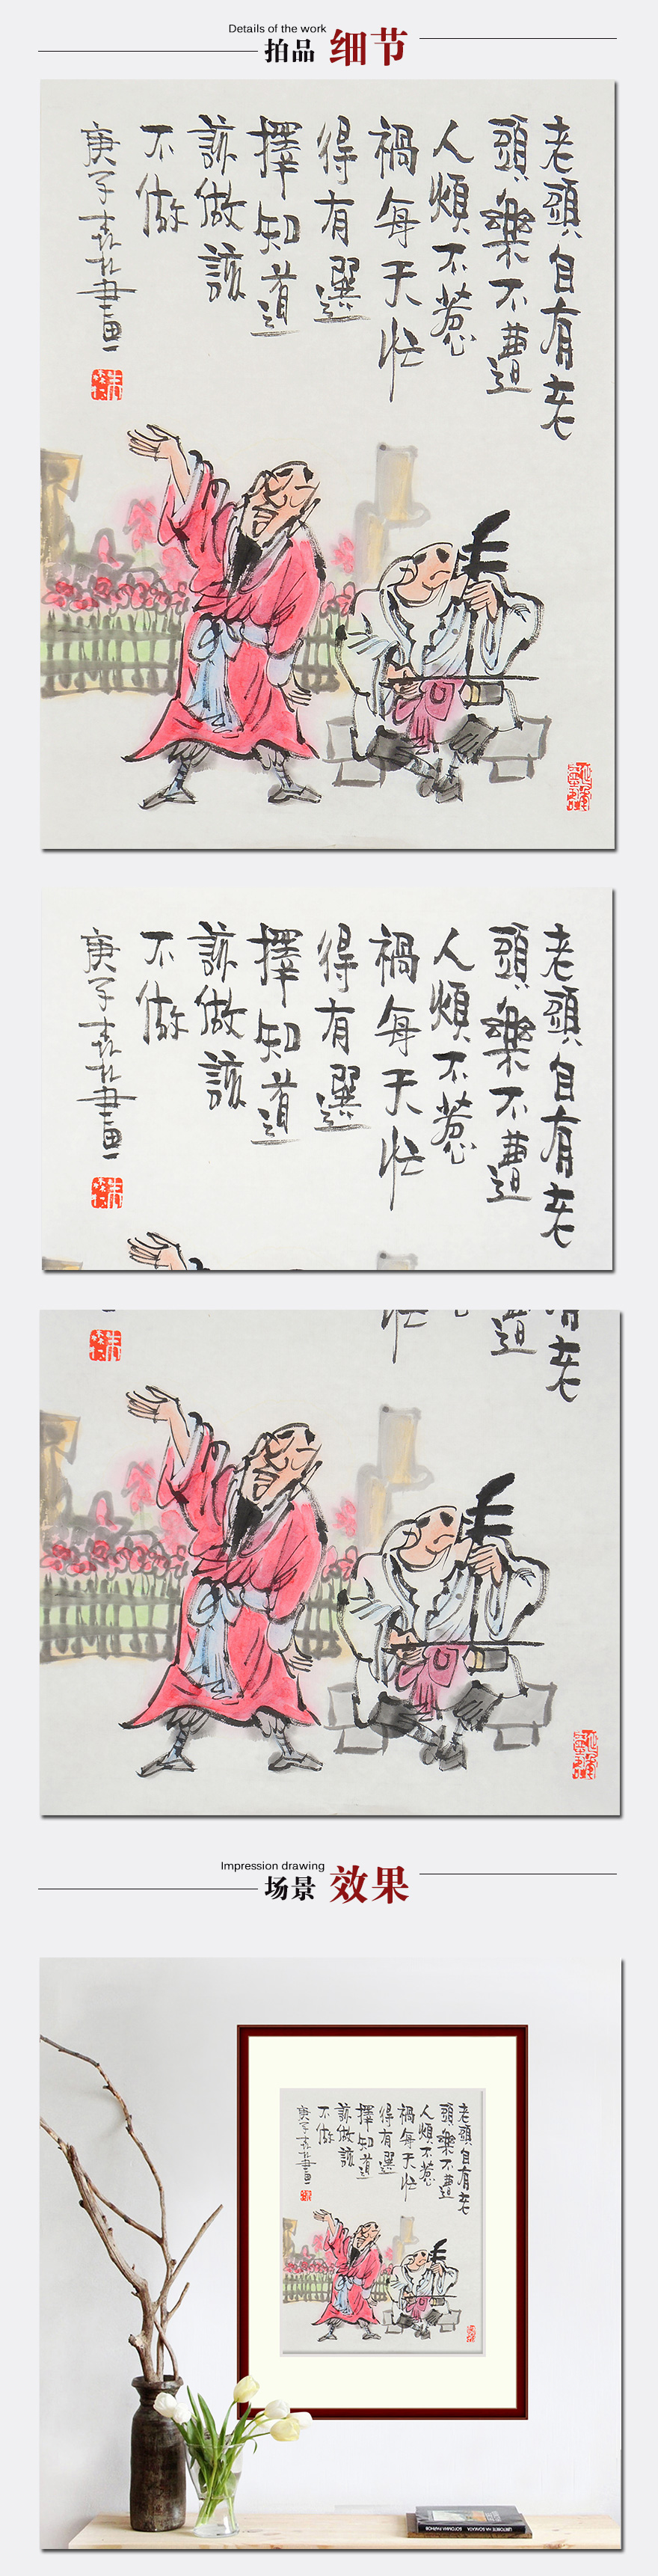 Details of the work
拍品 细节
老頭自有老
頭樂不遭
人煩不惹
禍每天忙
得有選
擇知道
該做該
不做
庚子
書畫
老頭自有老
頭樂不遭
人煩不惹
禍每天忙
得有選
擇知道
該做該
不做
庚子
書畫
Impression drawing
场景 效果
老頭自有老
頭樂不遭
人煩不惹
禍每天忙
得有選
擇知道
該做該
不做
庚子
書畫